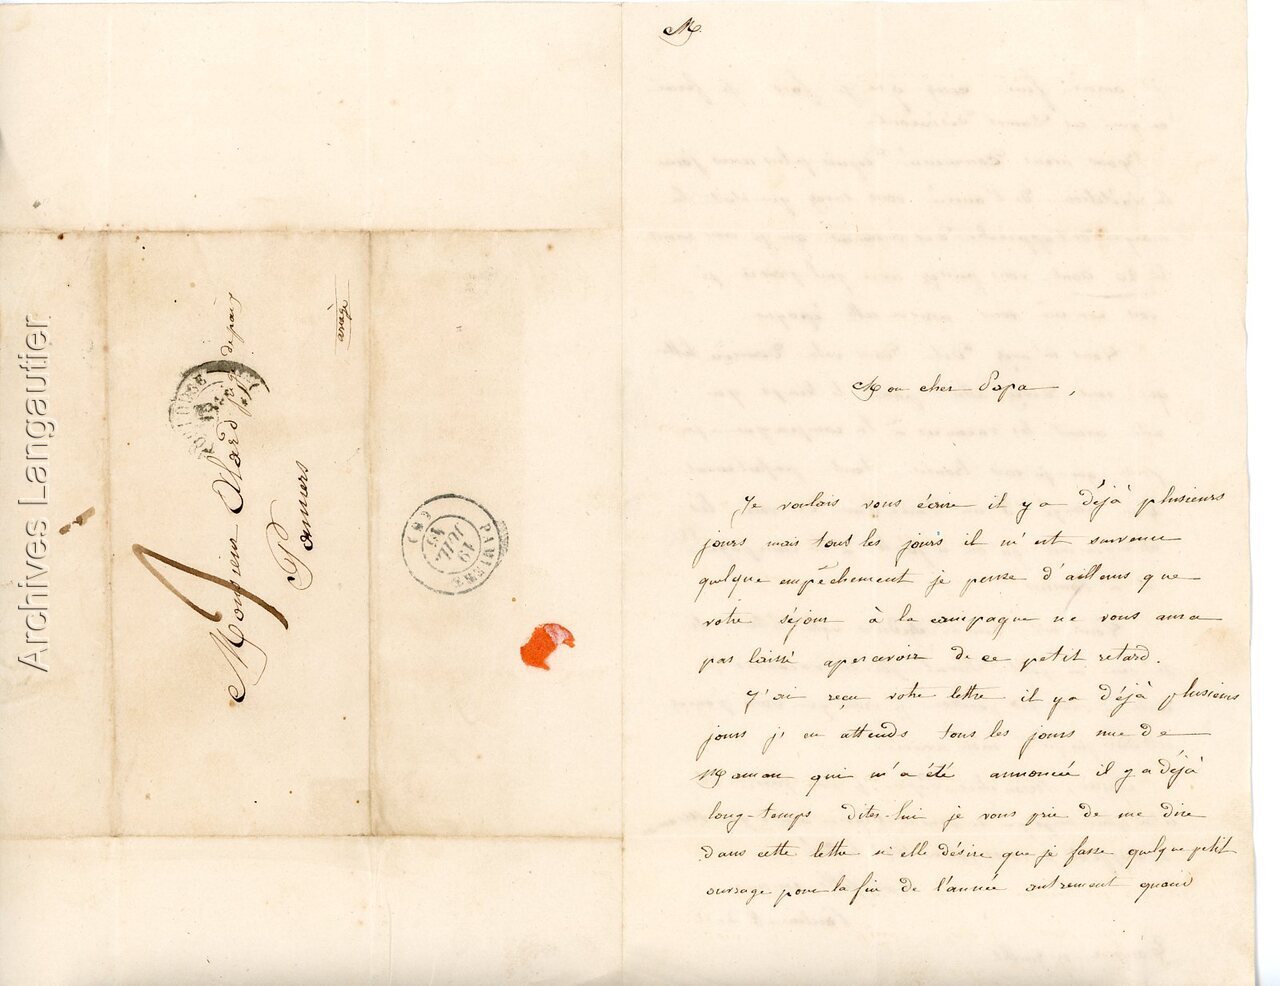 Archives Langautier
Monsieur Alard juge de paix
Pamiers
ariège
TOULOUSE
PAMIERS
19
JUIL
(8)
M.
Mon cher Papa,
Je voulais vous écrire il y a déjà plusieurs
jours mais tous les jours il m'est survenu
quelque empêchement je pense d'ailleurs que
votre séjour à la campagne ne vous aura
pas laissé apercevoir de ce petit retard.
J'ai reçu votre lettre il y a déjà plusieurs
jours j'en attends tous les jours une de
Maman qui m'a été annoncée il y a déjà
long-temps dites-lui je vous prie de me dire
dans cette lettre si elle désire que je fasse quelque petit
ouvrage pour la fin de l'année autrement quand